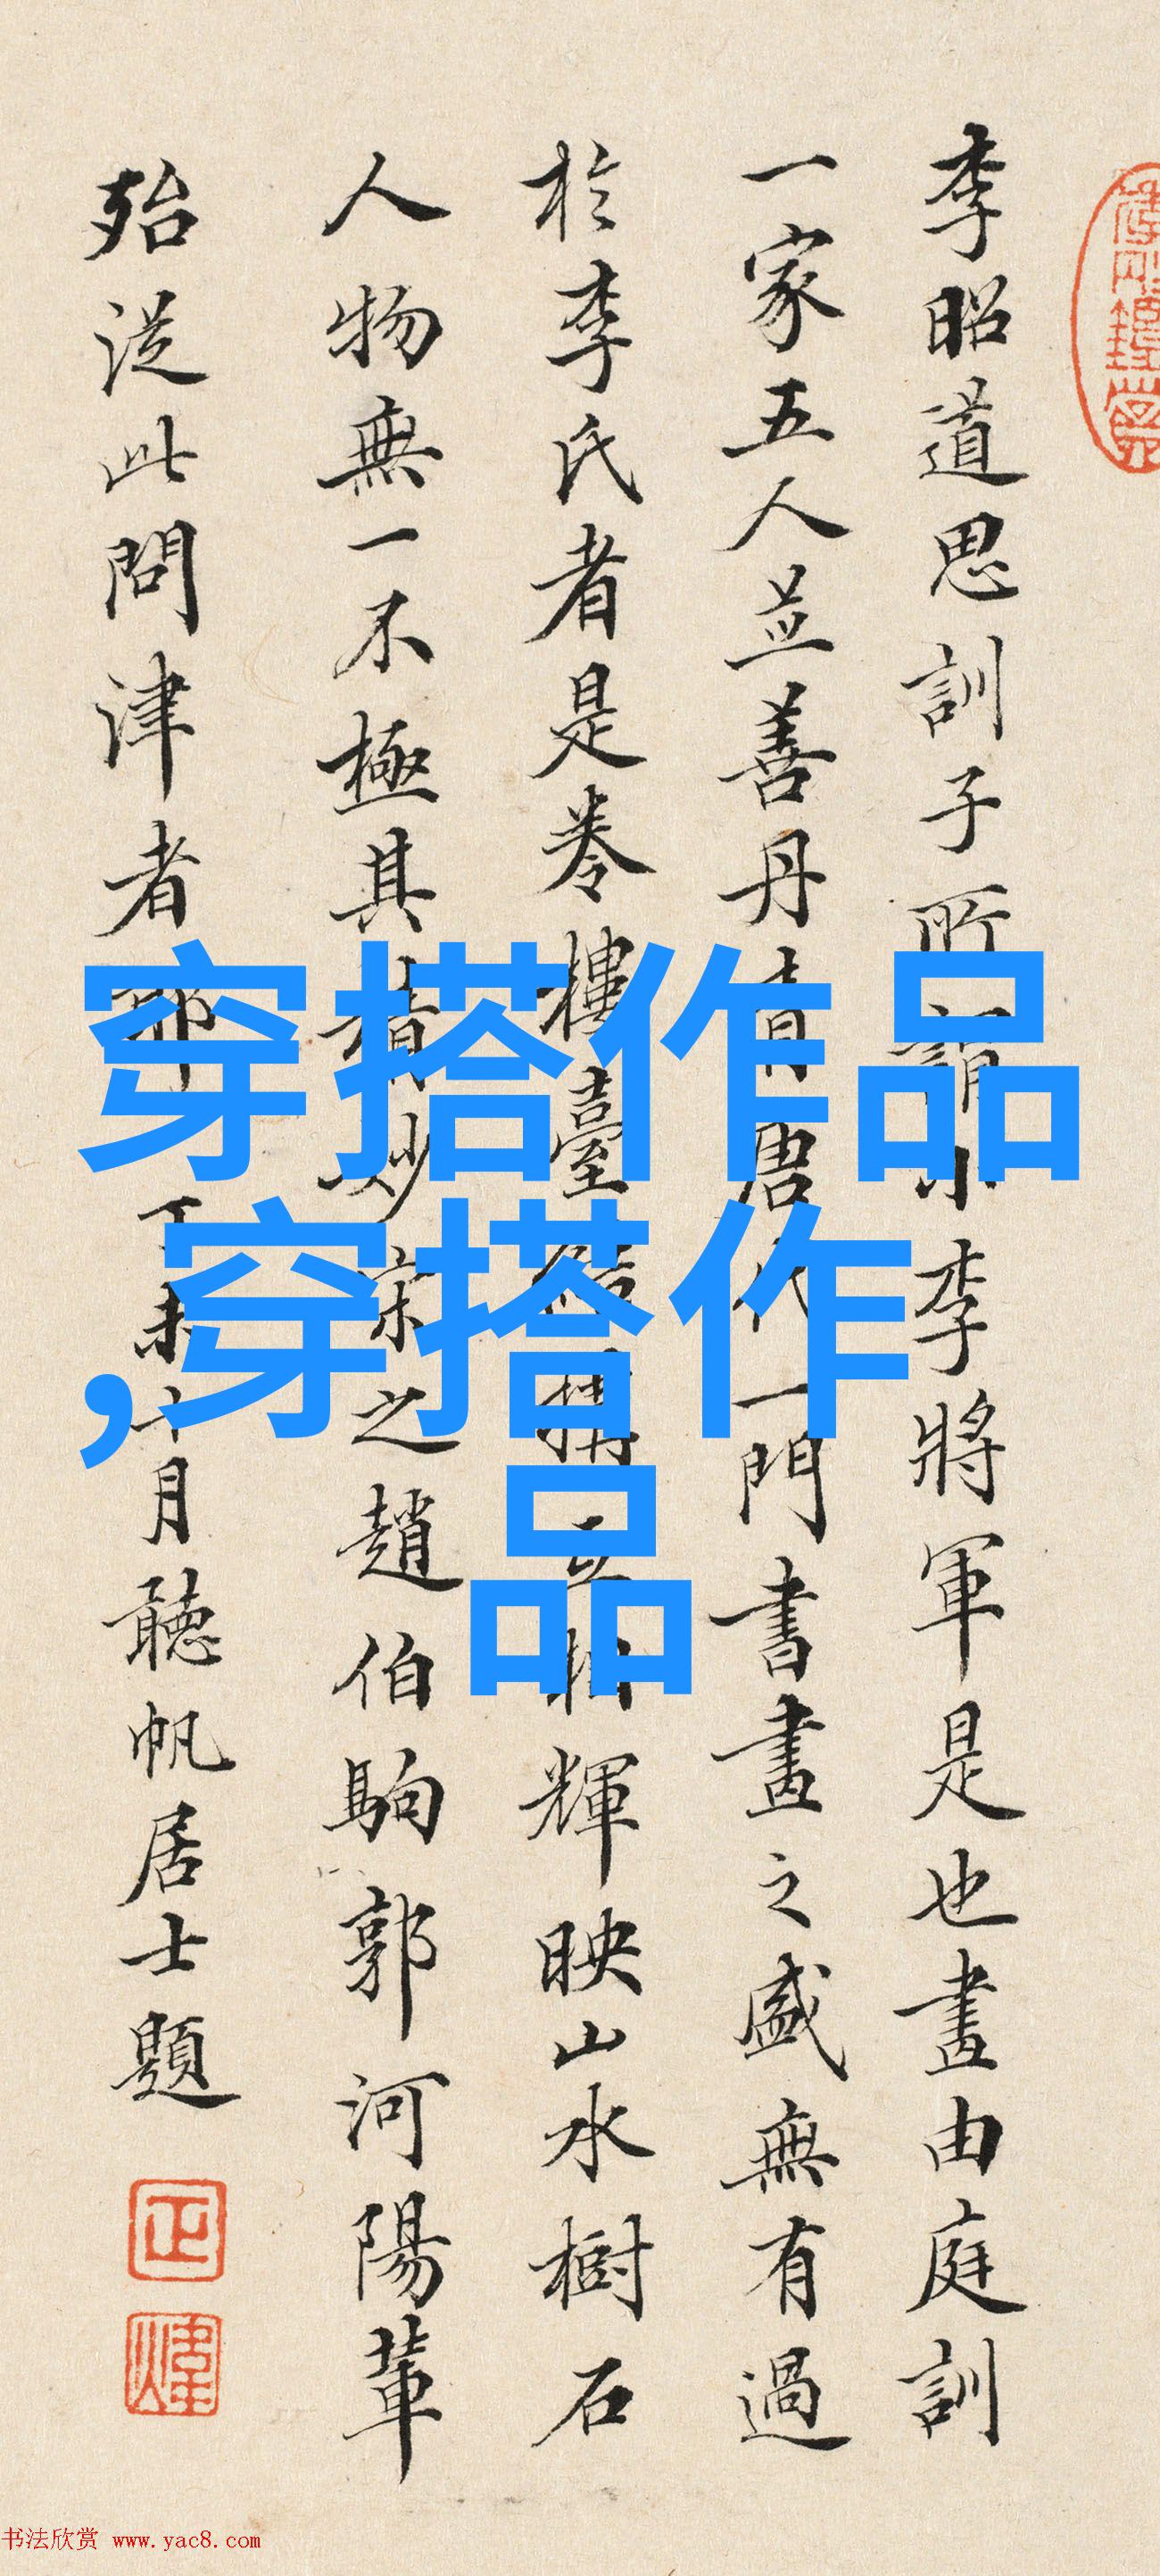 李昭道思訓子所謂小李將軍是也畫由庭訓
一家五人並善丹青唐代一門書畫之盛無有過
於李氏者是卷樓臺結構互相輝映山水樹石
人物無一不極其精妙宋之趙伯駒郭河陽輩
殆從此問津者耶 丁未十月聽帆居士題
正
煒
穿搭作品
,穿搭作
品
书法欣赏 www.yac8.com